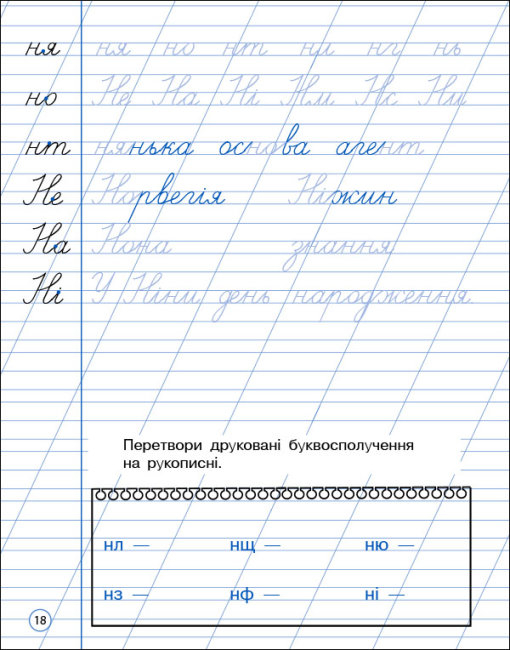 ня ня но нт нл нг нь
но Не На Ні Нм Нс Ни
нт нянька основа агент
Не Норвегія Ніжин
На Ножа знання
Ні У Ніни день народження
Перетвори друковані буквосполучення
на рукописні.
нл — нщ — ню —
нз — нф — ні —
18